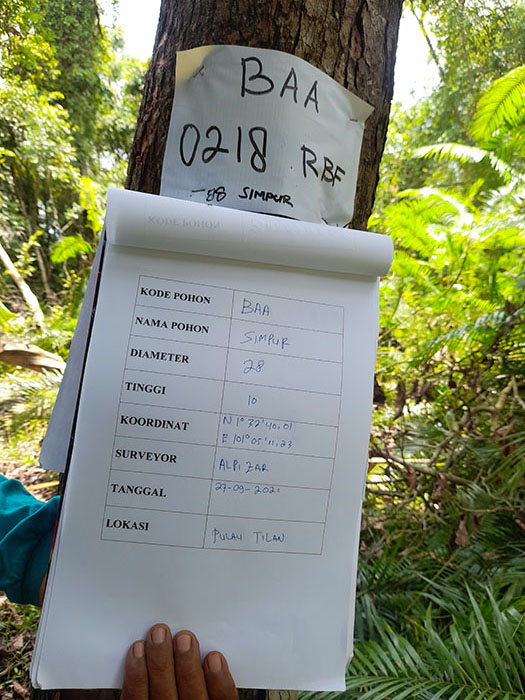 BAA
0218 RBF
28 SIMPUR
KODE POHON BAA
NAMA POHON SIMPUR
DIAMETER 28
TINGGI 10
KOORDINAT N 1° 32' 40,01
E 101° 05' 11,23
SURVEYOR ALPIZAR
TANGGAL 27-09-2021
LOKASI PULAU TILAN